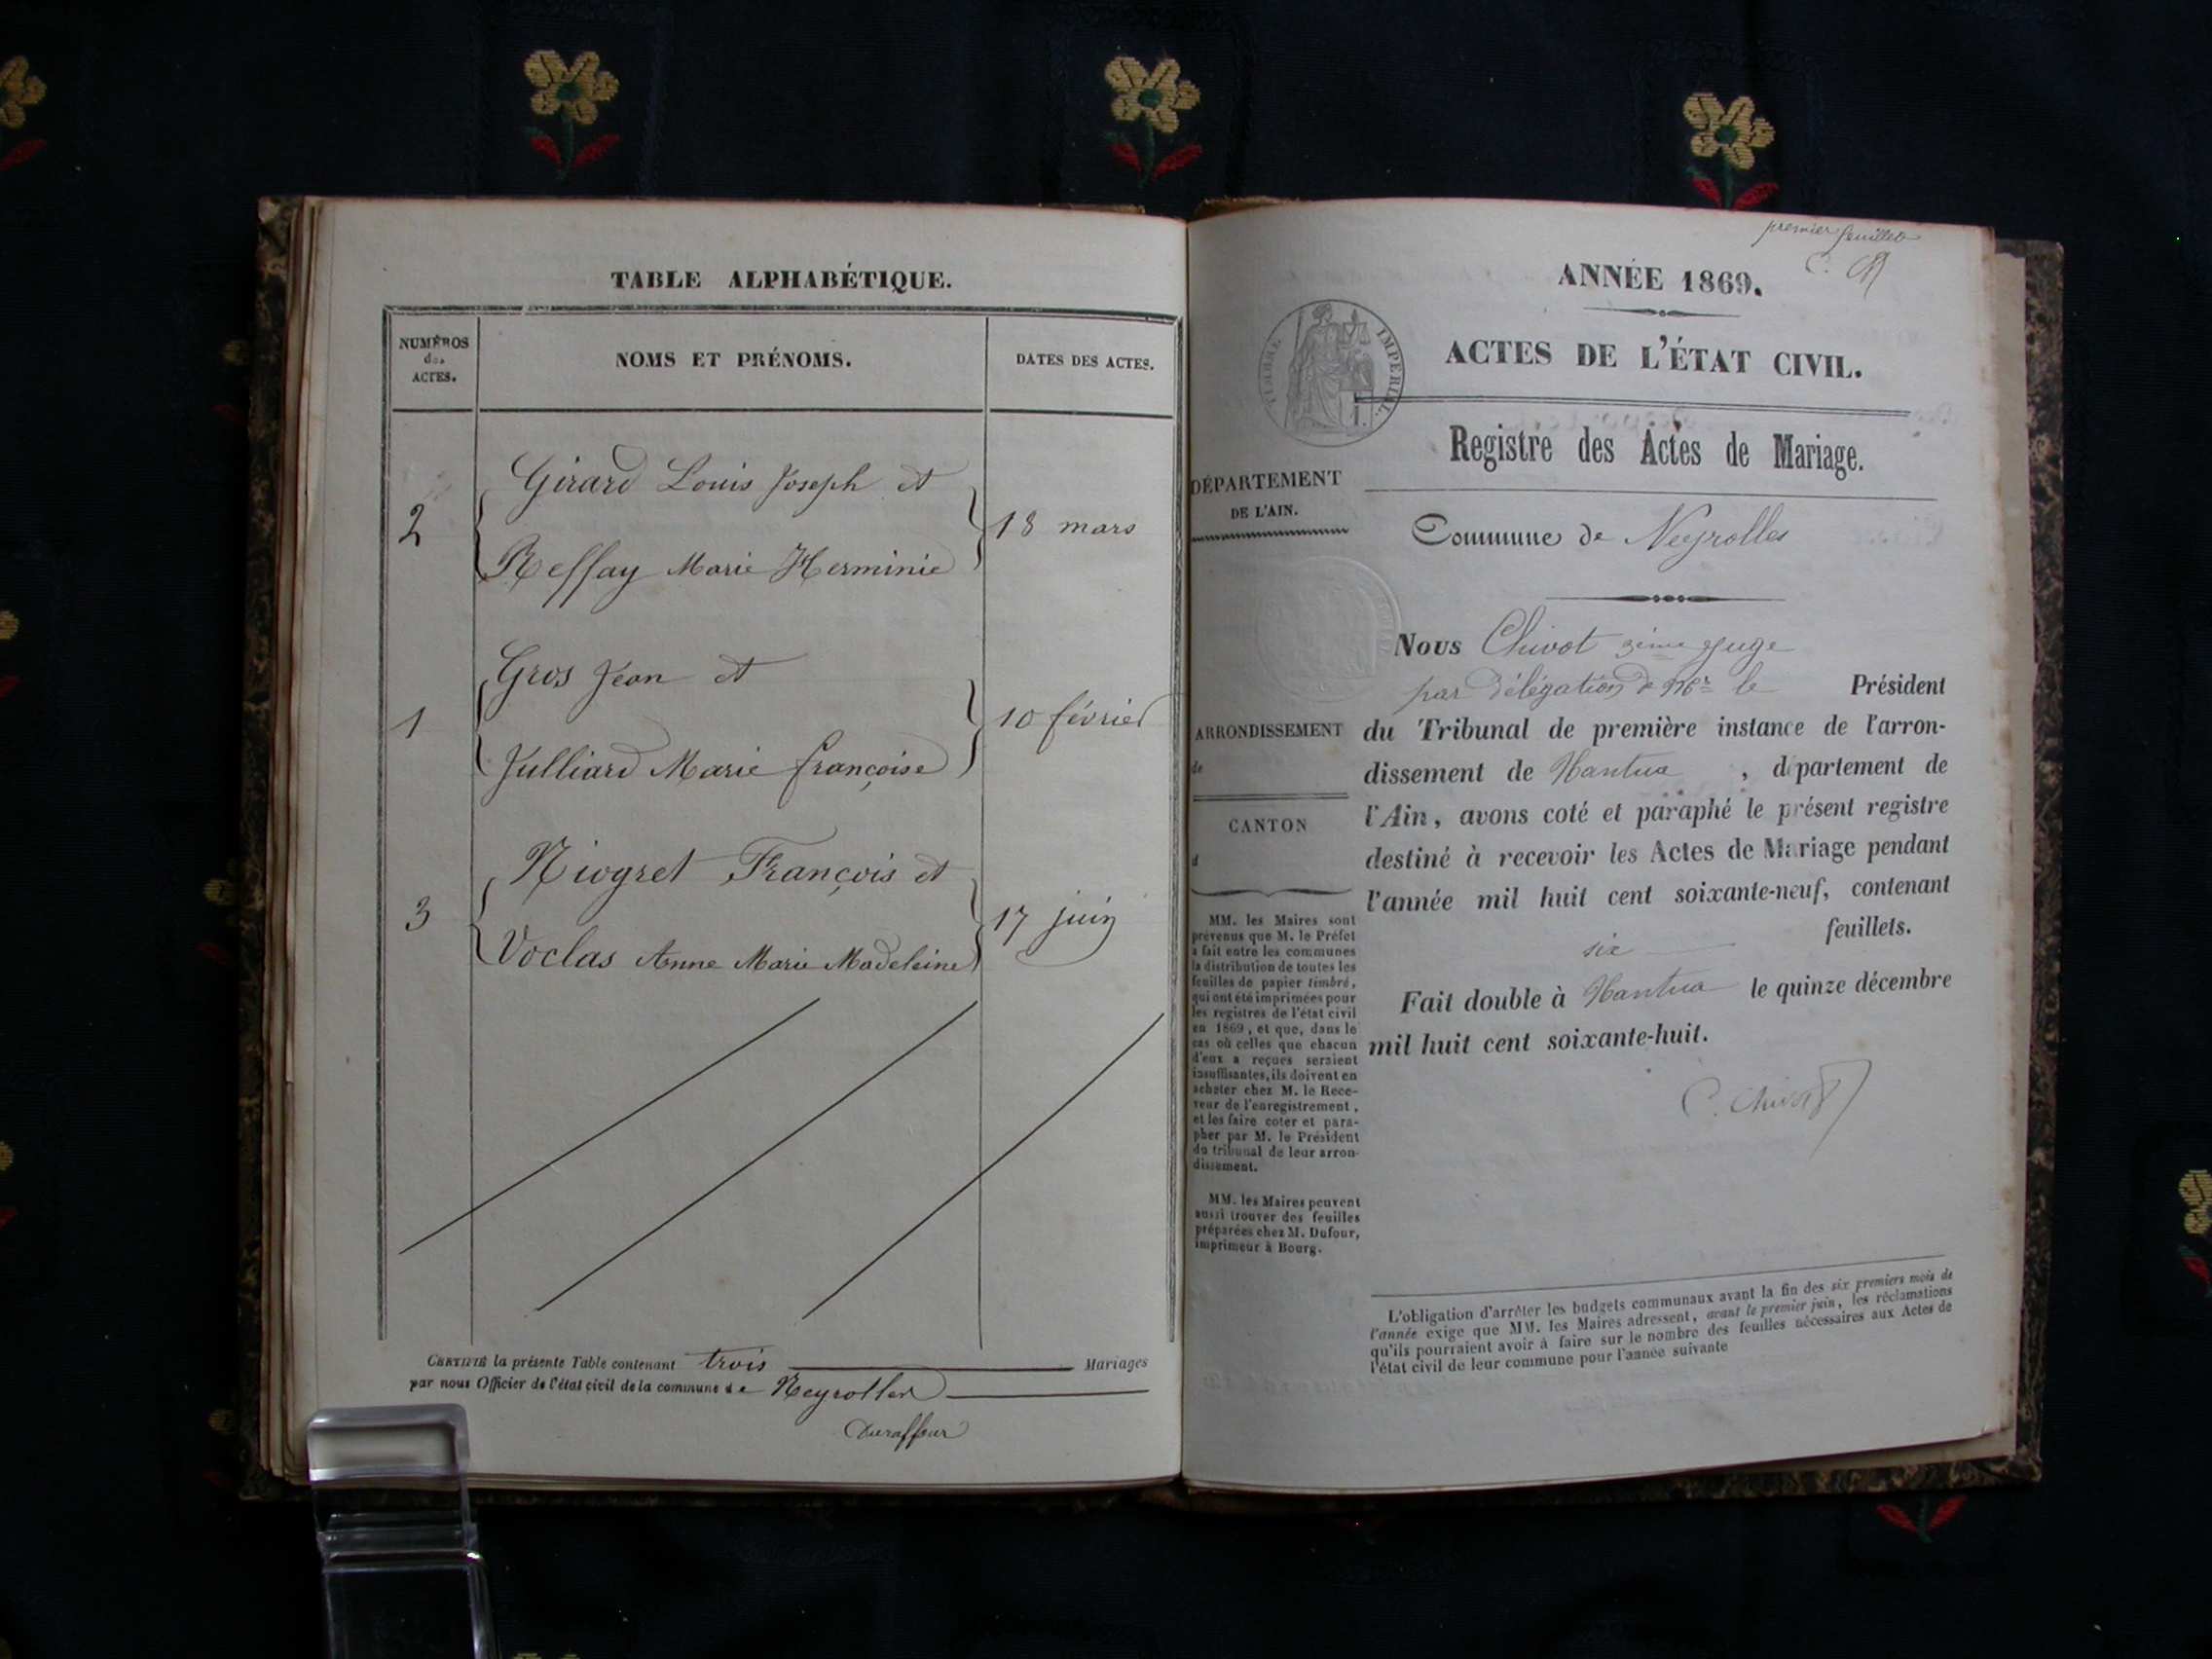 TABLE ALPHABÉTIQUE.
NUMÉROS
des
ACTES.
NOMS ET PRÉNOMS.
DATES DES ACTES.
Girard Louis Joseph et
2
18 mars
Reffay Marie Herminie
Gros Jean et
1
10 février
Julliard Marie françoise
Niogret François et
3
17 juin
Voclas Anne Marie Madeleine
CERTIFIÉ la présente Table contenant trois Mariages
par nous Officier de l'état civil de la commune de Neyrolles
Duraffour
premier feuillet
ANNÉE 1869.
TIMBRE IMPERIAL.
ACTES DE L'ÉTAT CIVIL.
Registre des Actes de Mariage.
DÉPARTEMENT
DE L'AIN.
Commune de Neyrolles
Nous Chivot 3ème juge
par délégation de Mr le Président
ARRONDISSEMENT
de
CANTON
d
du Tribunal de première instance de l'arron-
dissement de Nantua, département de
l'Ain, avons coté et paraphé le présent registre
destiné à recevoir les Actes de Mariage pendant
l'année mil huit cent soixante-neuf, contenant
six feuillets.
Fait double à Nantua le quinze décembre
mil huit cent soixante-huit.
C. Chivot
MM. les Maires sont
prévenus que M. le Préfet
a fait entre les communes
la distribution de toutes les
feuilles de papier timbré,
qui ont été imprimées pour
les registres de l'état civil
en 1869, et que, dans le
cas où celles que chacun
d'eux a reçues seraient
insuffisantes, ils doivent en
acheter chez M. le Rece-
veur de l'enregistrement,
et les faire coter et para-
pher par M. le Président
du tribunal de leur arron-
dissement.
MM. les Maires peuvent
aussi trouver des feuilles
préparées chez M. Dufour,
imprimeur à Bourg.
L'obligation d'arrêter les budgets communaux avant la fin des six premiers mois de
l'année exige que MM. les Maires adressent, avant le premier juin, les réclamations
qu'ils pourraient avoir à faire sur le nombre des feuilles nécessaires aux Actes de
l'état civil de leur commune pour l'année suivante